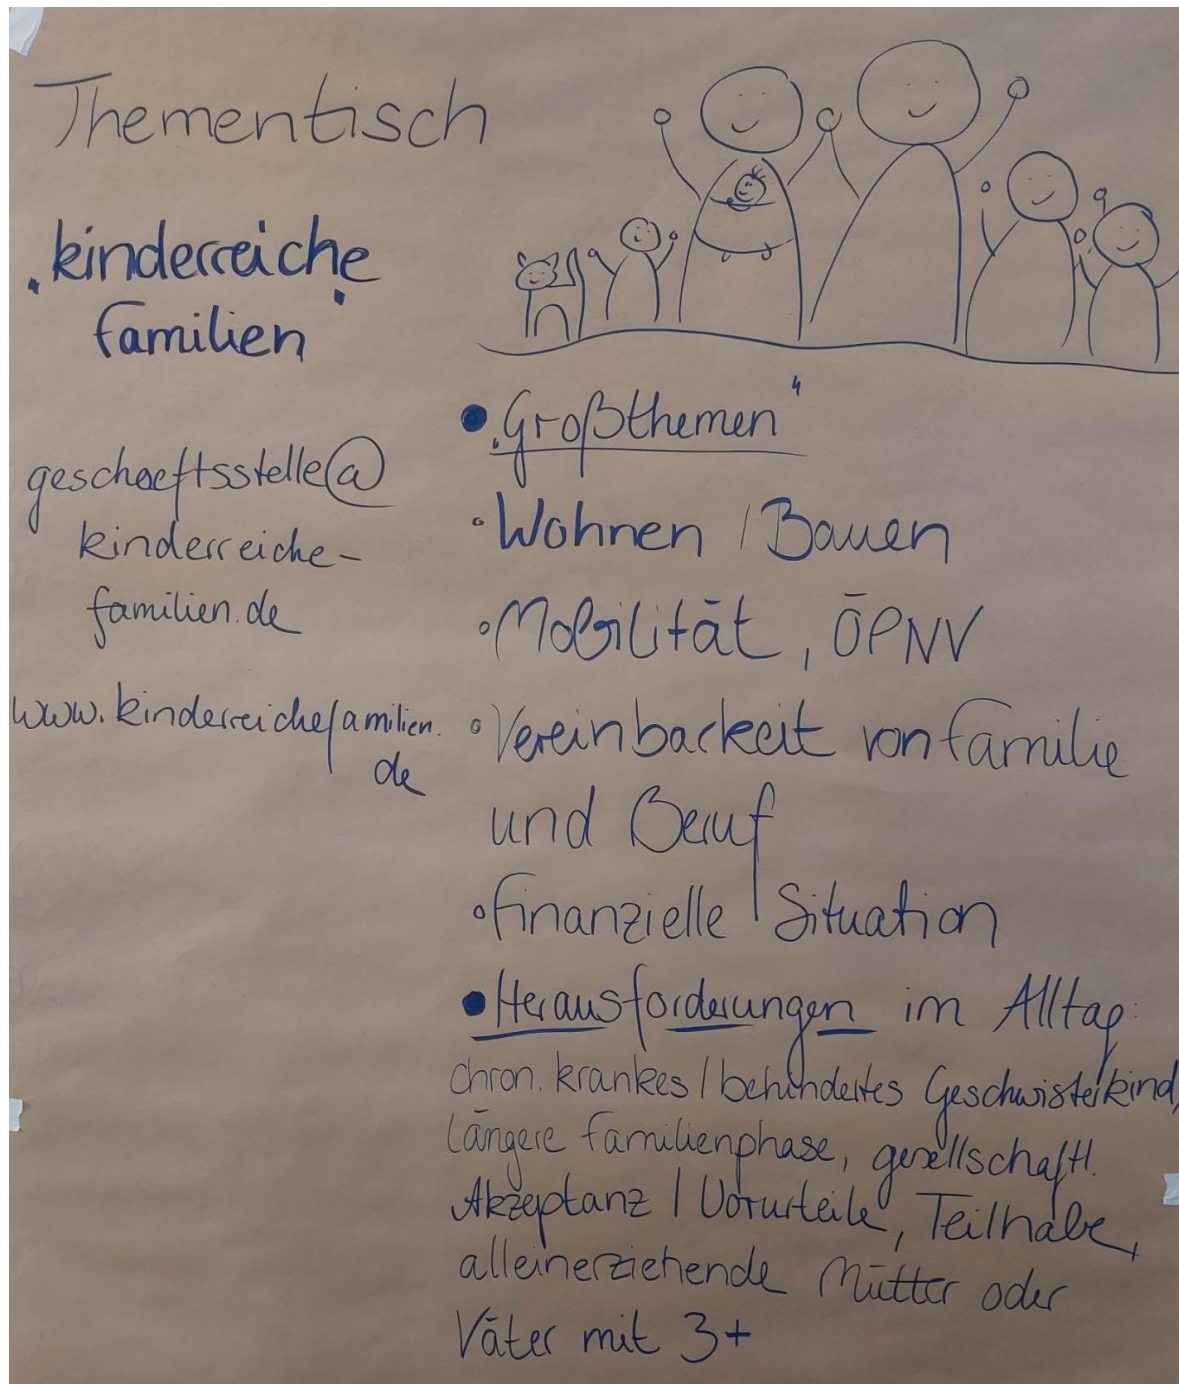 Thementisch
"kinderreiche
familien"
geschaeftsstelle@
kinderreiche-
familien.de
www.kinderreichefamilien.
de
• „Großthemen"
◦ Wohnen / Bauen
◦ Mobilität, ÖPNV
◦ Vereinbarkeit von Familie
und Beruf
◦ Finanzielle Situation
• Herausforderungen im Alltag:
chron. krankes / behindertes Geschwisterkind,
längere Familienphase, gesellschaftl.
Akzeptanz / Vorurteile, Teilhabe,
alleinerziehende Mütter oder
Väter mit 3+